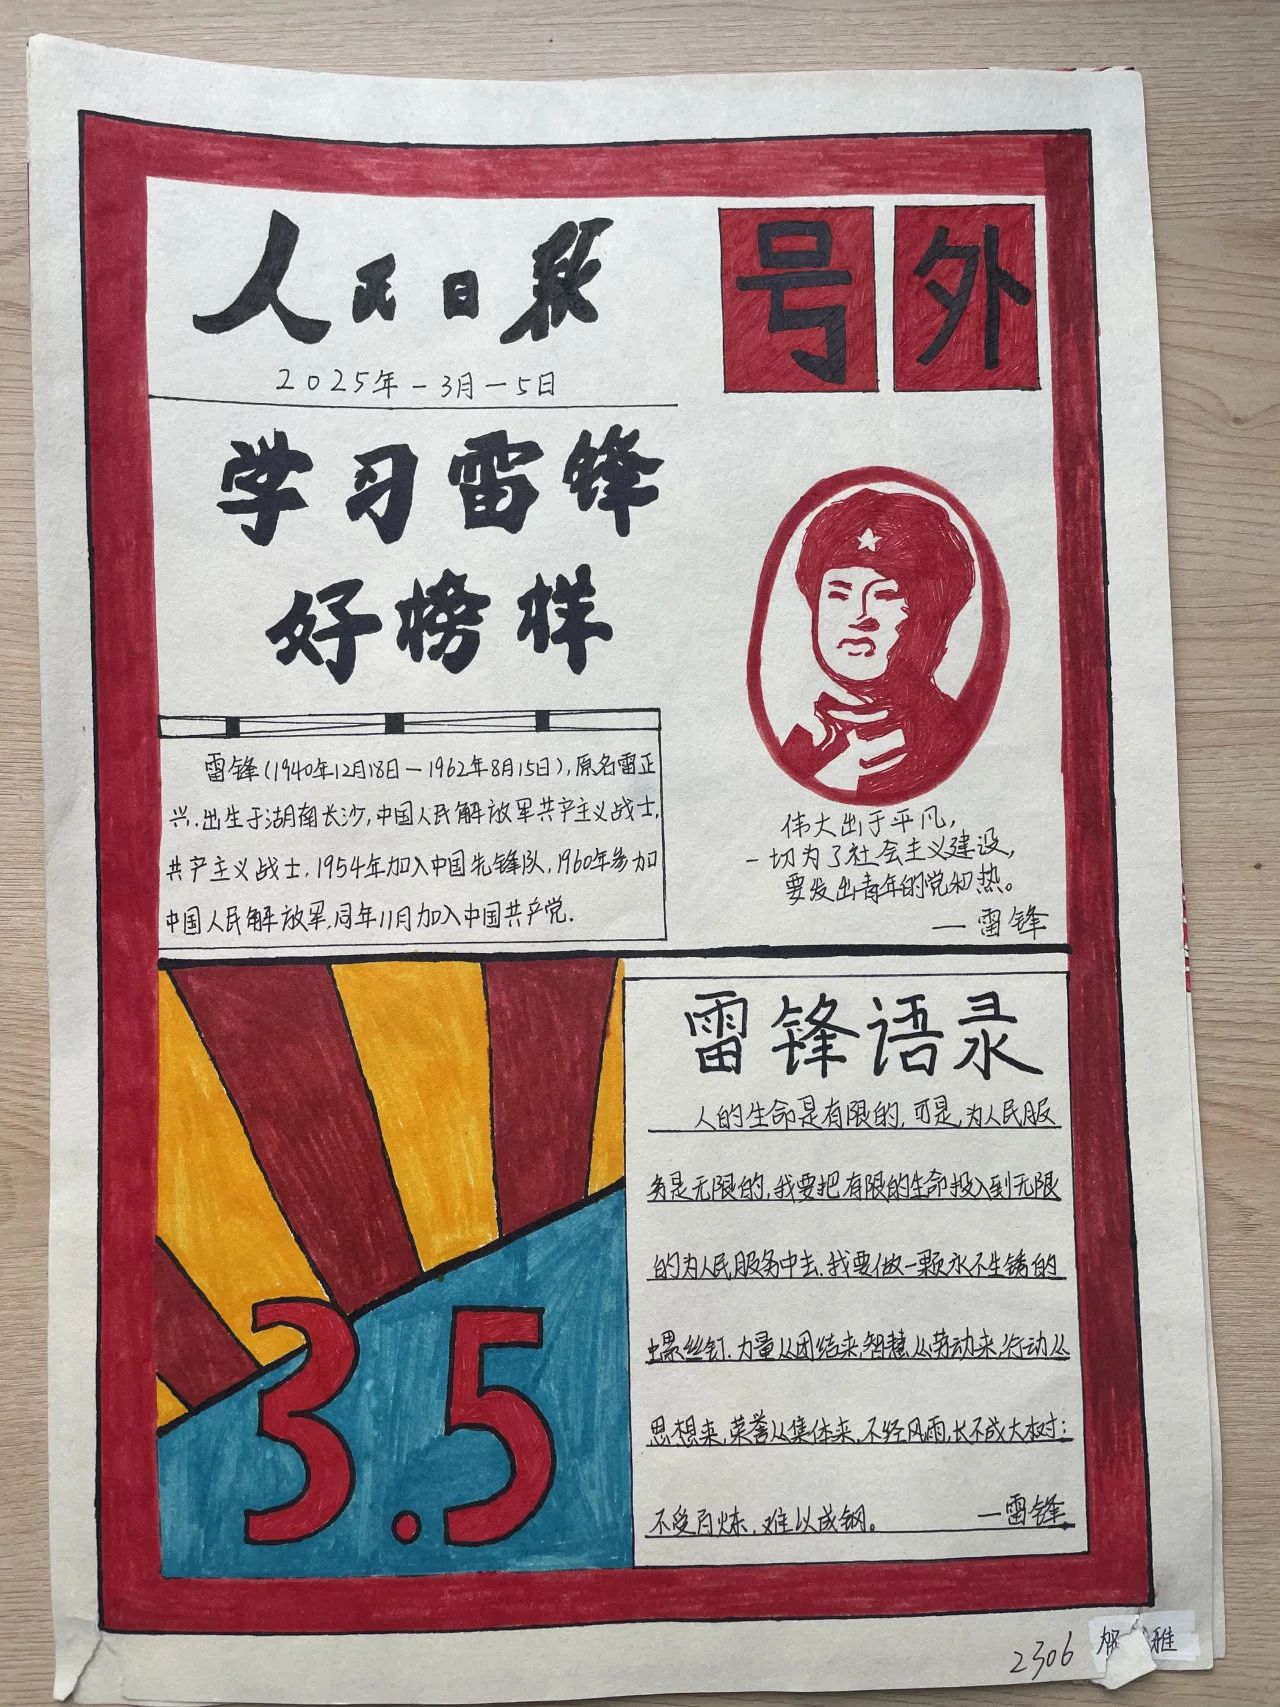 人民日报
号外
2025年-3月-5日
学习雷锋
好榜样
雷锋(1940年12月18日—1962年8月15日),原名雷正
兴.出生于湖南长沙,中国人民解放军共产主义战士,
共产主义战士,1954年加入中国先锋队,1960年参加
中国人民解放军,同年11月加入中国共产党.
伟大出于平凡,
一切为了社会主义建设,
要发出青年的光和热。
—雷锋
雷锋语录
人的生命是有限的,可是,为人民服
务是无限的,我要把有限的生命投入到无限
的为人民服务中去.我要做一颗永不生锈的
螺丝钉.力量从团结来,智慧从劳动来,行动从
思想来,荣誉从集体来.不经风雨,长不成大树;
不受百炼,难以成钢。 —雷锋
3.5
2306
雅